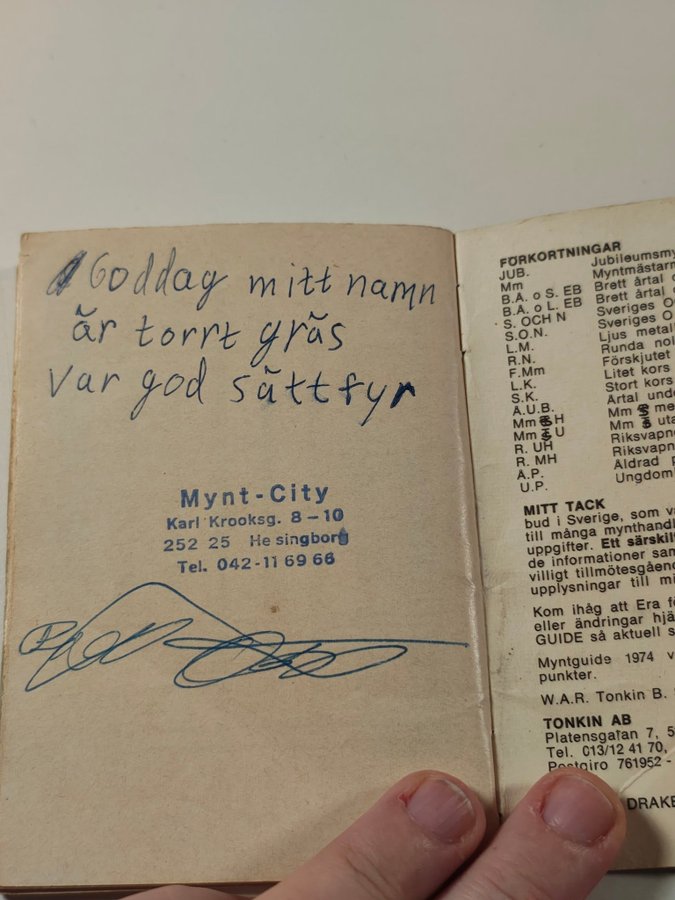 Goddag mitt namn
är torrt gräs
Var god sätt fyr
Mynt-City
Karl Krooksg. 8-10
252 25 He singborg
Tel. 042-11 69 66
FÖRKORTNINGAR
JUB. Jubileumsmy
Mm Myntmästarm
B.Å. o S. EB Brett årtal o
B.Å. o L. EB Brett årtal
S. OCH N Sveriges O
S.O.N. Sveriges O
L.M. Ljus metal
R.N. Runda nol
F.Mm Förskjutet
L.K. Litet kors
S.K. Stort kors
Å.U.B. Årtal und
Mm H Mm me
Mm U Mm uta
R. UH Riksvapne
R. MH Riksvapn
Ä.P. Äldrad p
U.P. Ungdom
MITT TACK
bud i Sverige, som va
till många mynthandl
uppgifter. Ett särskil
de informationer sam
villigt tillmötesgåend
upplysningar till mi
Kom ihåg att Era fö
eller ändringar hjä
GUIDE så aktuell s
Myntguide 1974 v
punkter.
W.A.R. Tonkin B.
TONKIN AB
Platensgatan 7, 5
Tel. 013/12 41 70,
Postgiro 761952 -
DRAKE